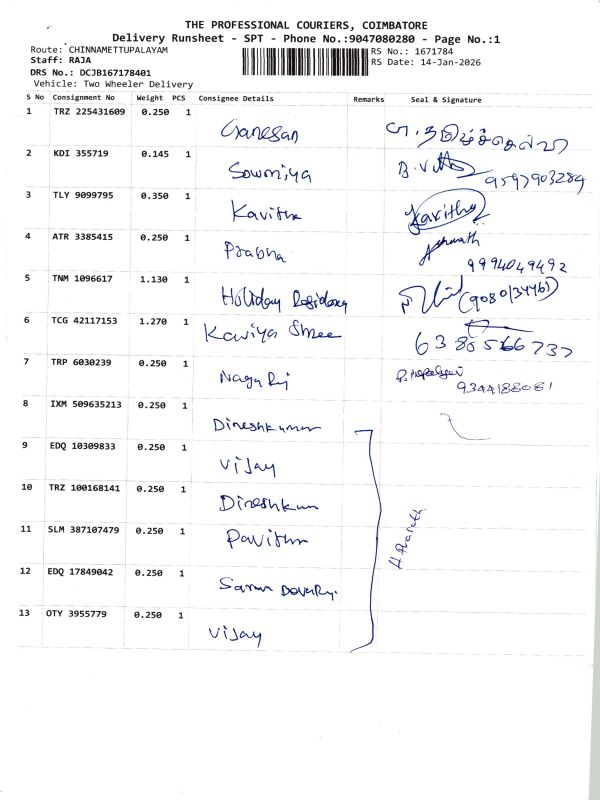 THE PROFESSIONAL COURIERS, COIMBATORE
Delivery Runsheet - SPT - Phone No.:9047080280 - Page No.:1
Route: CHINNAMETTUPALAYAM
RS No.: 1671784
Staff: RAJA
RS Date: 14-Jan-2026
DRS No.: DCJB167178401
Vehicle: Two Wheeler Delivery
S No Consignment No Weight PCS Consignee Details Remarks Seal & Signature
1 TRZ 225431609 0.250 1 Ganesan
2 KDI 355719 0.145 1 Sowmiya 9597903284
3 TLY 9099795 0.350 1 Kavitha Kavitha
4 ATR 3385415 0.250 1 Prabha 9994049492
5 TNM 1096617 1.130 1 Holiday Residency
6 TCG 42117153 1.270 1 Kaviya Shree
7 TRP 6030239 0.250 1 Nagaraj 9344188081
8 IXM 509635213 0.250 1 Dineshkumar
9 EDQ 10309833 0.250 1 Vijay
10 TRZ 100168141 0.250 1 Dineshkum
11 SLM 387107479 0.250 1 Pavithra
12 EDQ 17849042 0.250 1
13 OTY 3955779 0.250 1 Vijay